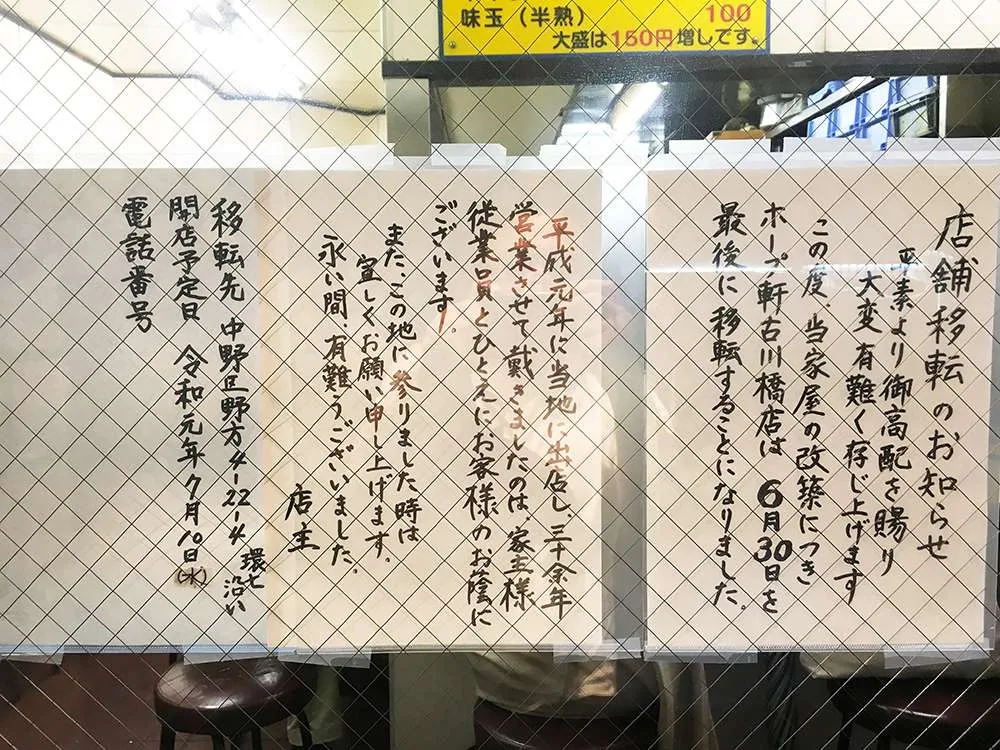 味玉(半熟) 100
大盛は150円増しです。
店舗移転のお知らせ
平素より御高配を賜り
大変有難く存じ上げます
この度、当家屋の改築につき
ホープ軒古川橋店は 6月30日を
最後に移転することになりました。
平成元年に当地に出店し、三十余年
営業させて戴きましたのは、家主様
従業員とひとえにお客様のお蔭に
ございます。
また、この地に参りました時は
宜しくお願い申し上げます。
永い間、有難うございました。
店主
移転先 中野区野方4-22-4 環七沿い
開店予定日 令和元年7月10日(水)
電話番号